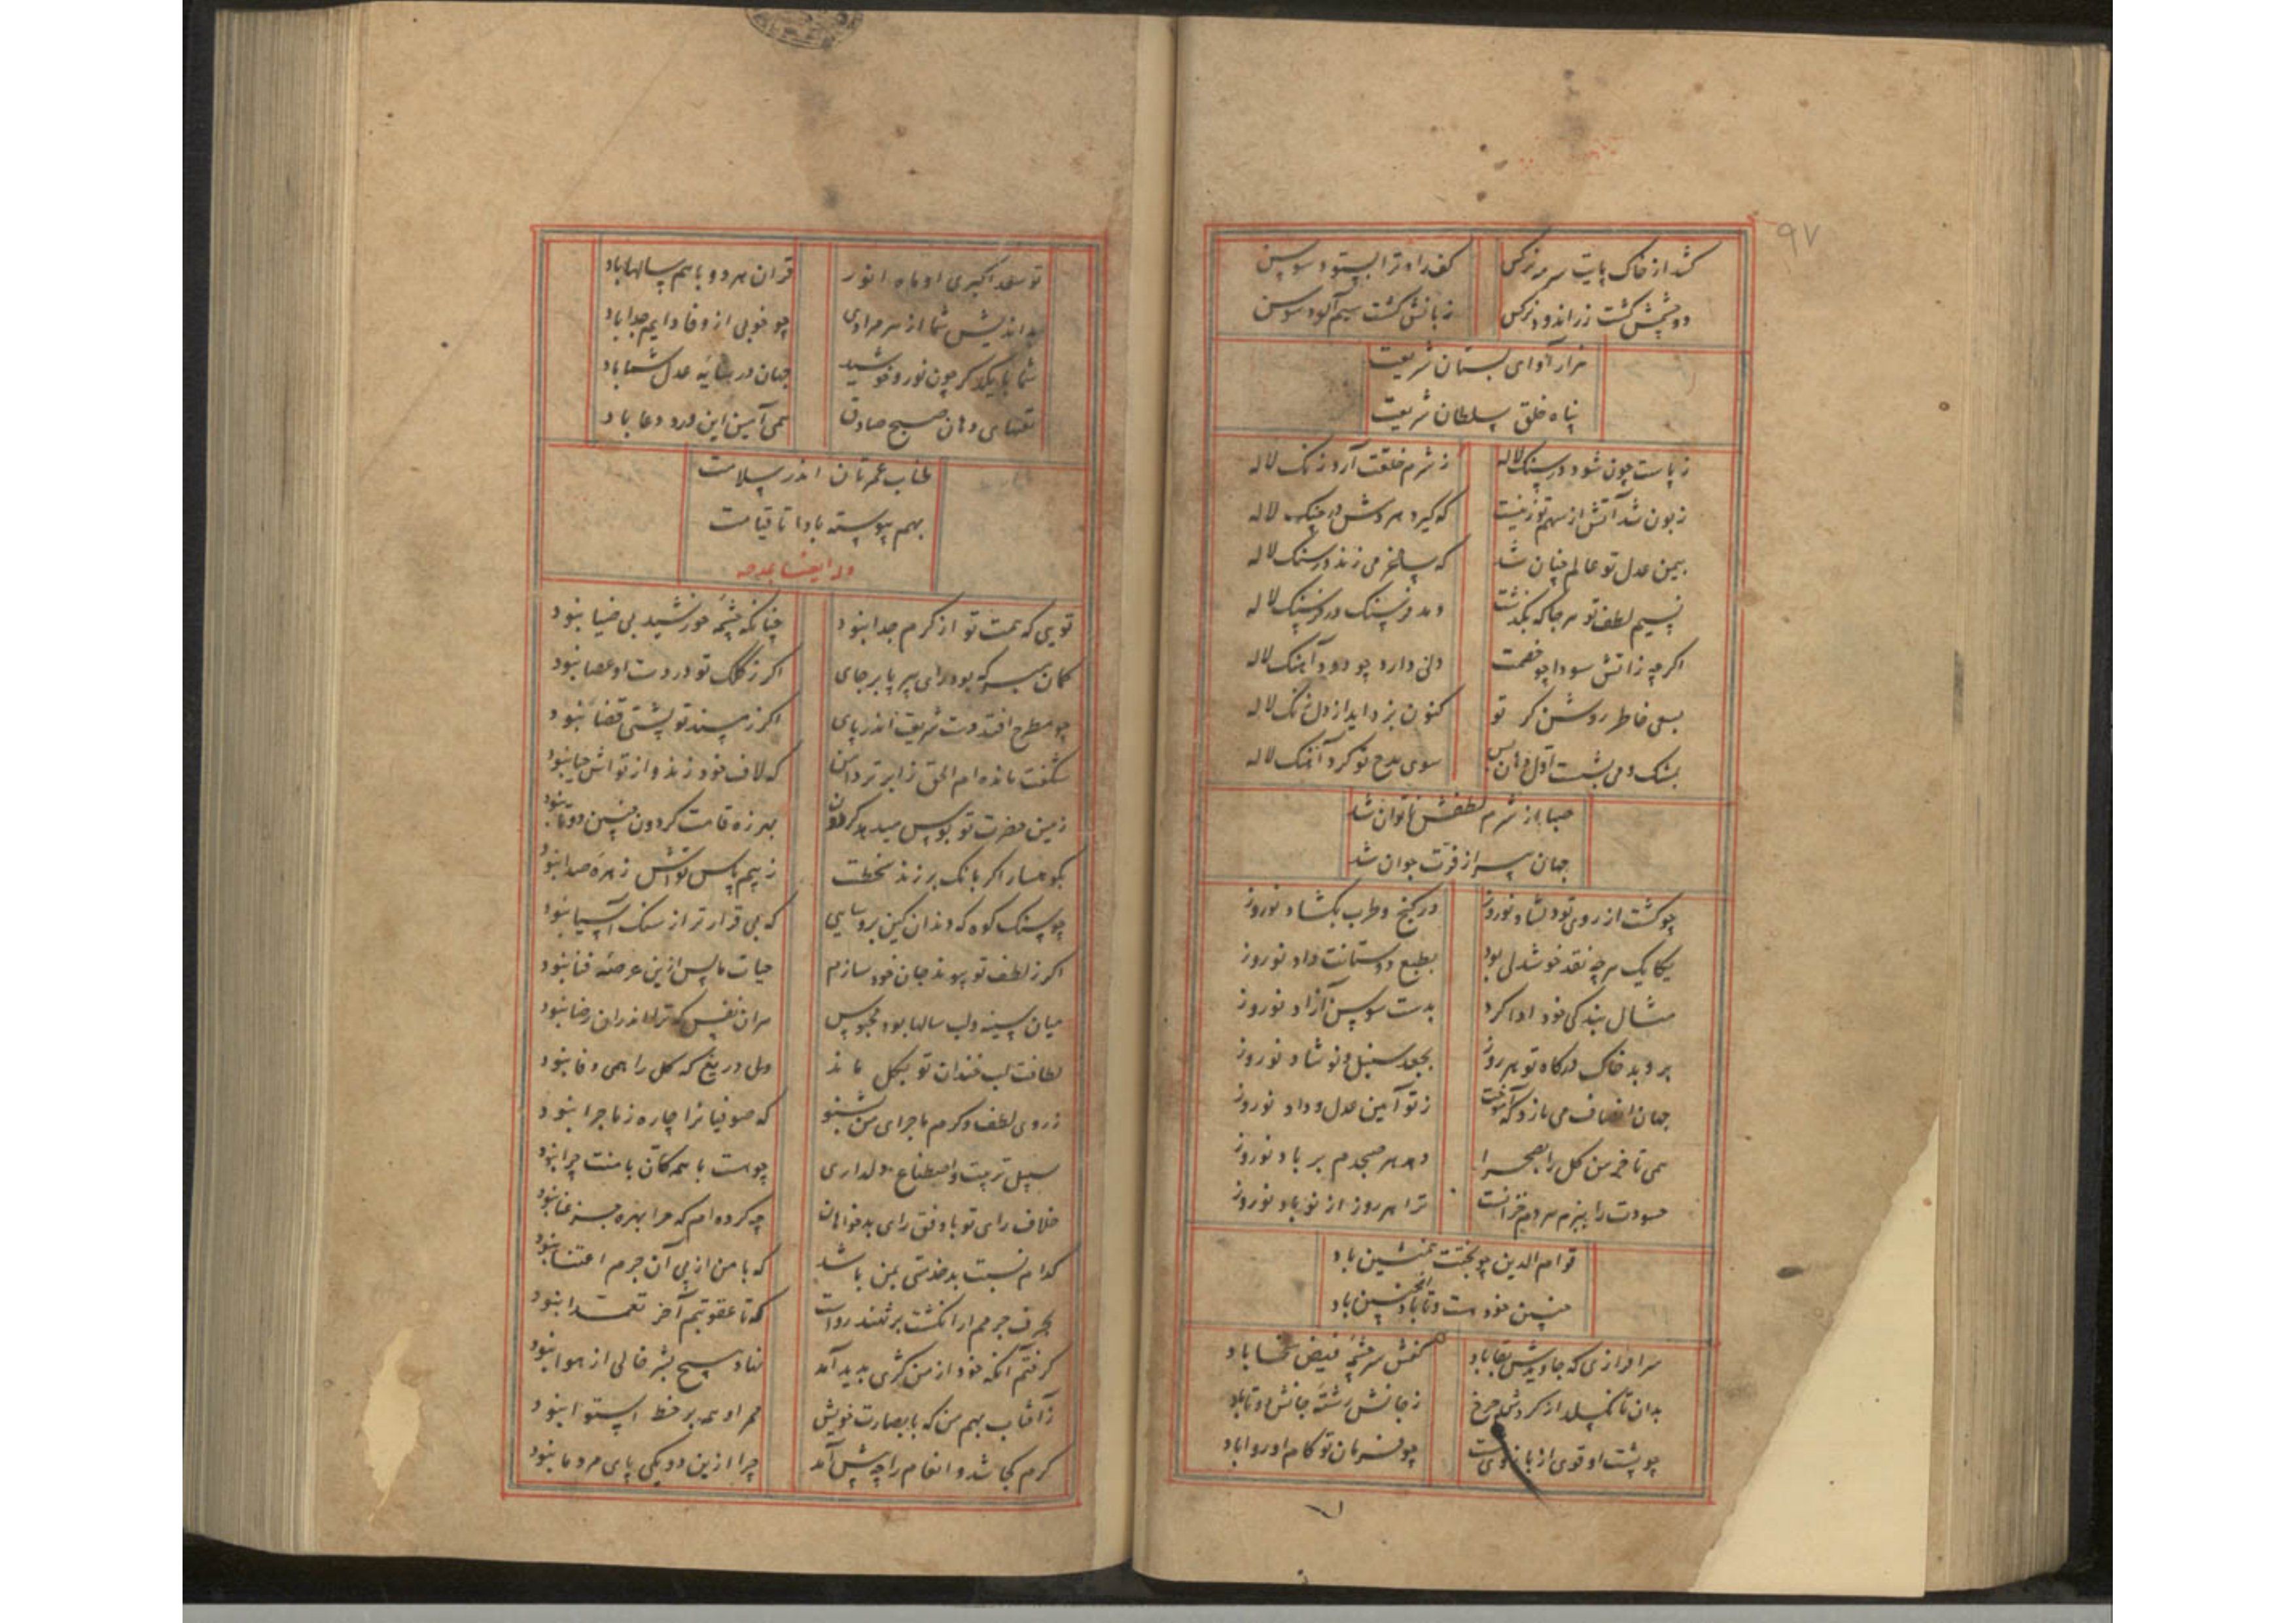 ۹۷
کشد از خاک پایت سرمه نرکس
کف راد ترا بستود سوسن
دو چشمش کشت زر اندود نرکس
زبانش کشت سیم آلود سوسن
هزار آوای بستان شریعت
پناه خلق سلطان شریعت
ز پاست چون شود در سنک لاله
ز شرم خلقت آرد رنک لاله
زبون شد آتش از سهم تو زینت
که کیرد هر دمش در چنک لاله
بیمن عدل تو عالم چنان شد
که ساغر می زند در سنک لاله
نسیم لطف تو هر جا که بکذشت
دمد فرسنک در فرسنک لاله
اکر چه ز آتش سودا چو خصمت
دلی دارد چو دود آهنک لاله
بسعی خاطر روشن کر تو
کنون بزداید از دل زنک لاله
بمشک و می بشست اول دهان پس
سوی مدح تو کرد آهنک لاله
صبا از شرم لطفش ناتوان شد
جهان پیر از فرت جوان شد
چو کشت از روی تو دلشاد نوروز
در کنج و طرب بکشاد نوروز
یکایک هر چه نقد خوشدلی بود
بطبع دوستانت داد نوروز
مثال بندکی خود ادا کرد
بدست سوسن آزاد نوروز
بروبد خاک درکاه تو هر روز
بجعد سنبل و نوشاد نوروز
جهان انصاف می نازد که آموخت
ز تو آیین عدل و داد نوروز
همی تا خرمن کل را بصحرا
دهد هر صبحدم بر باد نوروز
حسودت را ببزم مردم خزانست
ترا هر روز از نو باد نوروز
قوام الدین چو بختت همنشین باد
چنین خود هست و تا باد اینچنین باد
سرافرازی که جاویدش بقا باد
کفش سرچشمه فیض سخا باد
بدان تا نکسلد از کردش چرخ
ز جانش رشته جانش دو تا باد
چو پشت او قوی از بازوی تست
چو فرمان تو کام او روا باد
تو سعد اکبری او ماه انور
قران هر دو با هم سالها باد
بد اندیش شما از سر مرادی
چو خوبی از وفا دایم جدا باد
شما با یکدکر چون نور و خورشید
جهان در سایه عدل شما باد
تقاضای دهان صبح صادق
همی آمین این ورد و دعا باد
طناب عمرتان اندر سلامت
بهم پیوسته بادا تا قیامت
وله ایضا یمدحه
تویی که همت تو از کرم جدا نبود
چنانکه چشمه خورشید بی ضیا نبود
کمان مبر که بود رای پیر پا بر جای
اکر ز کلک تو در دست او عصا نبود
چو مطرح افتد دست شریعت اندر پای
اکر ز مسند تو پشتی قضا نبود
شکفت مانده ام الحق ز ابر تر دامن
که لاف خود زند و از تواش حیا نبود
زمین حضرت تو بوس میدهد کردون
بهرزه قامت کردون چنین دوتا نبود
بکوهسار اکر بانک بر زند سخطت
ز بیم پاس تواش زهره صدا نبود
چو سنک کوه که دندان کین برو سایی
که بی قرارتر از سنک آسیا نبود
اکر ز لطف تو پیوند جان خود سازم
حیات ما پس ازین عرصه فنا نبود
میان سینه و لب سالها بود محبوس
هر ان نفس که ترا اندران رضا نبود
لطافت لب خندان تو بکل ماند
ولی دریغ که کل را همی وفا نبود
ز روی لطف و کرم ماجرای من بشنو
که صوفیانرا چاره ز ماجرا نبود
سبیل تربیت و اصطناع و دلداری
چو هست با همه کان با منت چرا نبود
خلاف رای تو یا وفق رای بدخواهان
چه کرده ام که مرا بهره جز عنا نبود
کدام نسبت بد خدمتی بمن باشد
که با من از پی آن جرم اعتنا نبود
بحرف جرمم ار انکشت بر نهند رواست
که تا عقوبتم آخر تعمدا نبود
کرفتم آنکه خود از من کژی بدید آمد
نهاد هیچ بشر خالی از هوا نبود
ز آفتاب بهم من که با بصارت خویش
ممر او همه بر خط استوا نبود
کرم کجا شد و انعام را چه پیش آمد
چرا ازین دو یکی پای مرد ما نبود